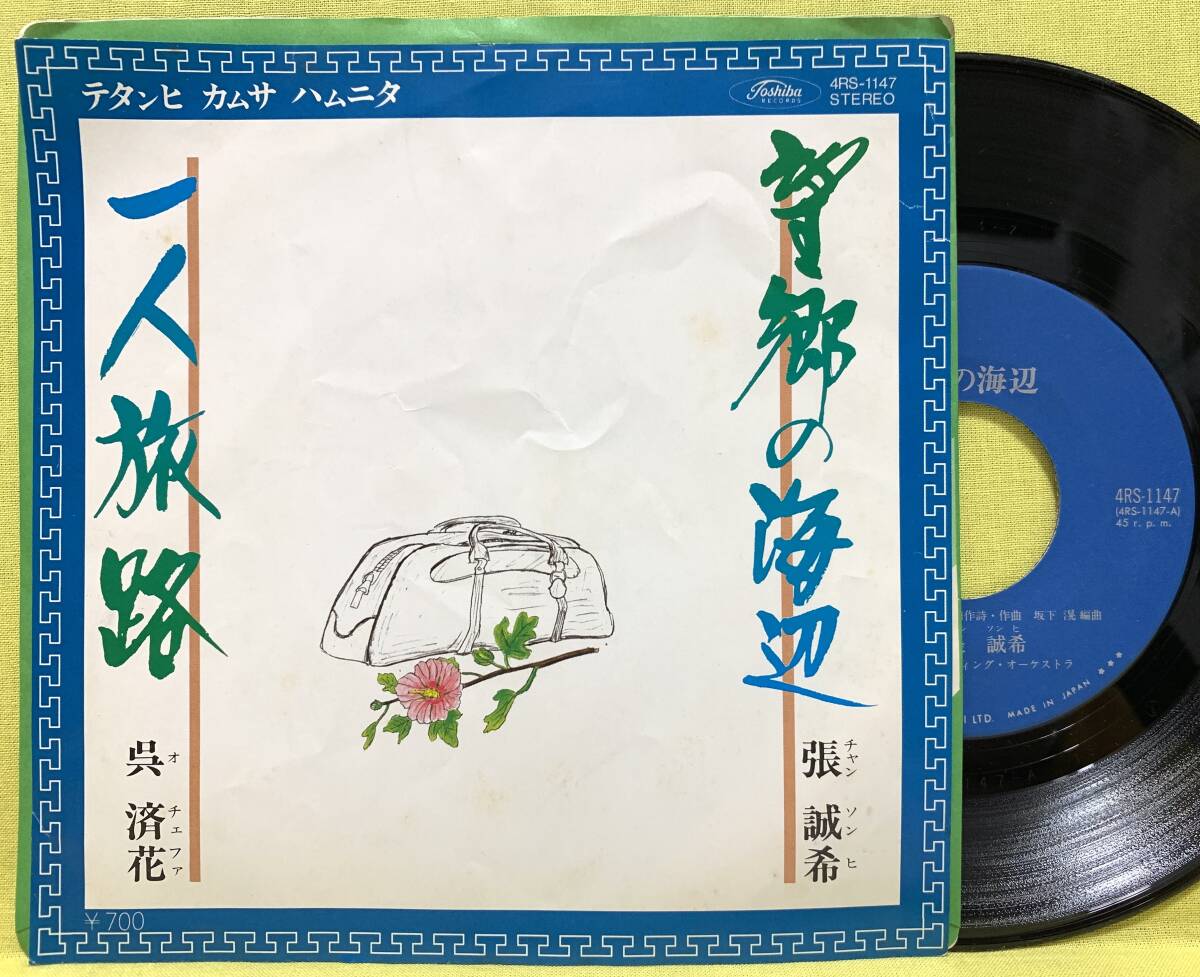 テタンヒ カムサ ハムニタ
Toshiba
RECORDS
4RS-1147
STEREO
望郷の海辺
張 誠希
チャン ソン ヒ
一人旅路
呉 済花
オ チェ ファ
¥700
の海辺
4RS-1147
(4RS-1147-A)
45 r. p. m.
作詩・作曲 坂下 滉 編曲
ン ソン ヒ
誠希
ィング・オーケストラ
LTD. MADE IN JAPAN ★★★